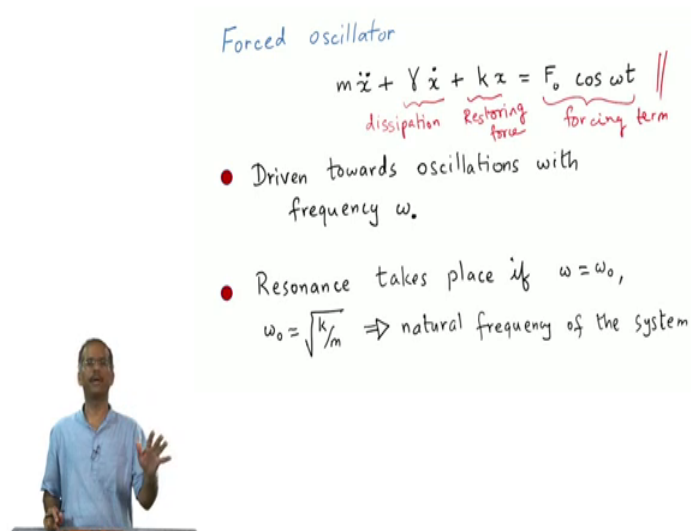 Forced oscillator
mẍ + γẋ + kx = F₀ cos ωt ||
dissipation Restoring force forcing term
• Driven towards oscillations with
frequency ω.
• Resonance takes place if ω = ω₀,
ω₀ = √(k/m) ⇒ natural frequency of the system